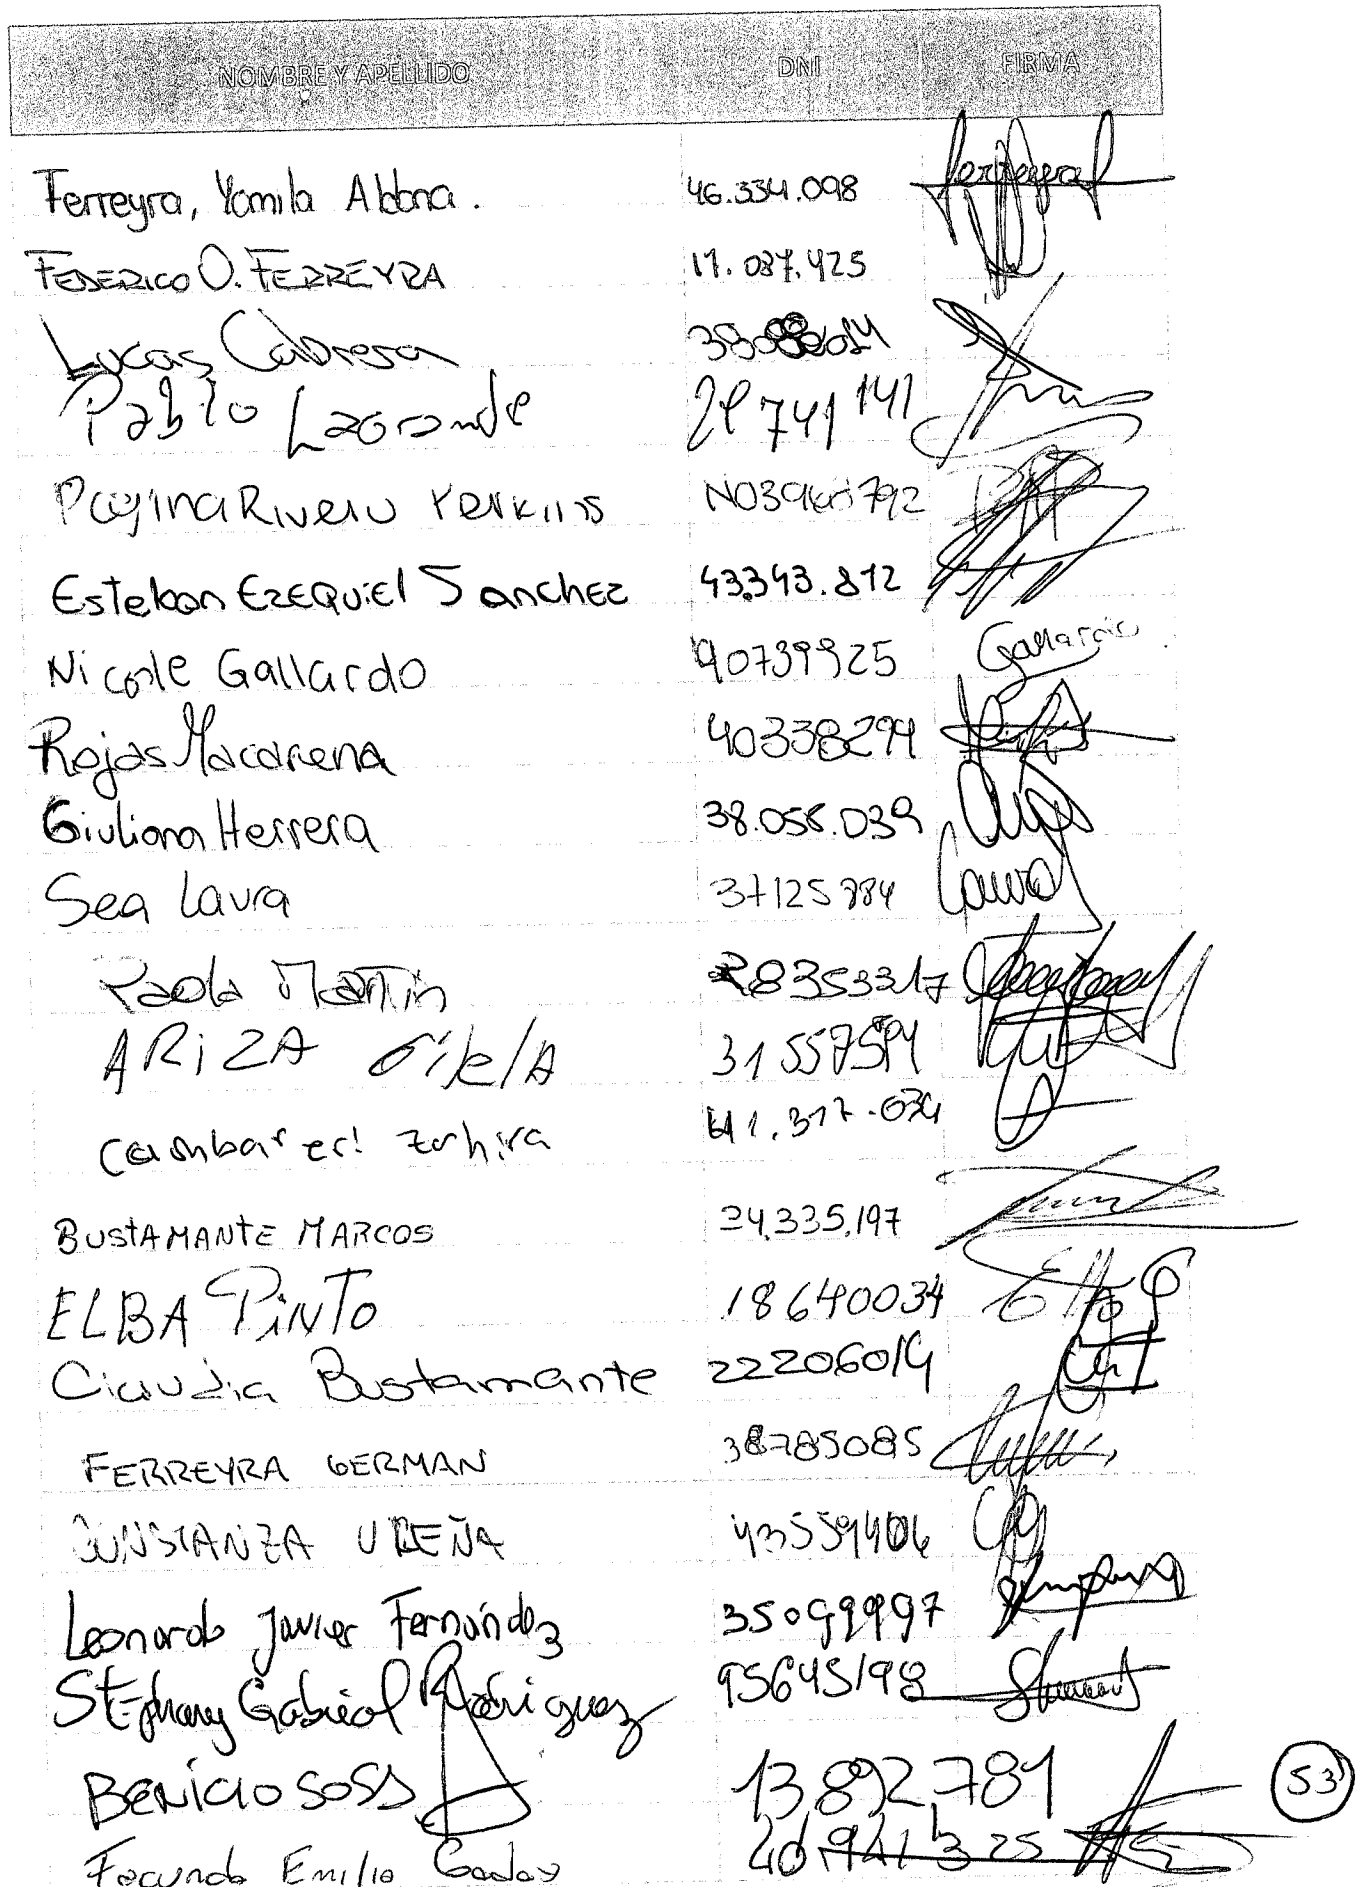 NOMBRE Y APELLIDO DNI FIRMA
Ferreyra, Yamila Aldana. 46.334.098 ferreyra
FEDERICO O. FERREYRA 17.087.425
Lucas Cabrera
Pablo Lagrande 29 741 141
Rivero Perkins
Esteban EZEQUiEl Sanchez 43.343.812
Nicole Gallardo 40739925 Gallardo
Rojas Macarena 40338294
Giuliana Herrera 38.058.039
Sea Laura 37125884 Laura
Paola Martin 28353317
ARiZA 31557594
zahira 41.317.034
BUSTAMANTE MARCOS 24.335.197
ELBA PiNTO 18640034 Elba P
Claudia Bustamante 22206014
FERREYRA GERMAN 38785085
CONSTANZA UREÑA 43559406
Leonardo Javier Fernández 35099997
Stephany Gabriel Rodriguez 95645198
BENICIO SOSA 13.892.781
53
Facundo Emilio Godoy